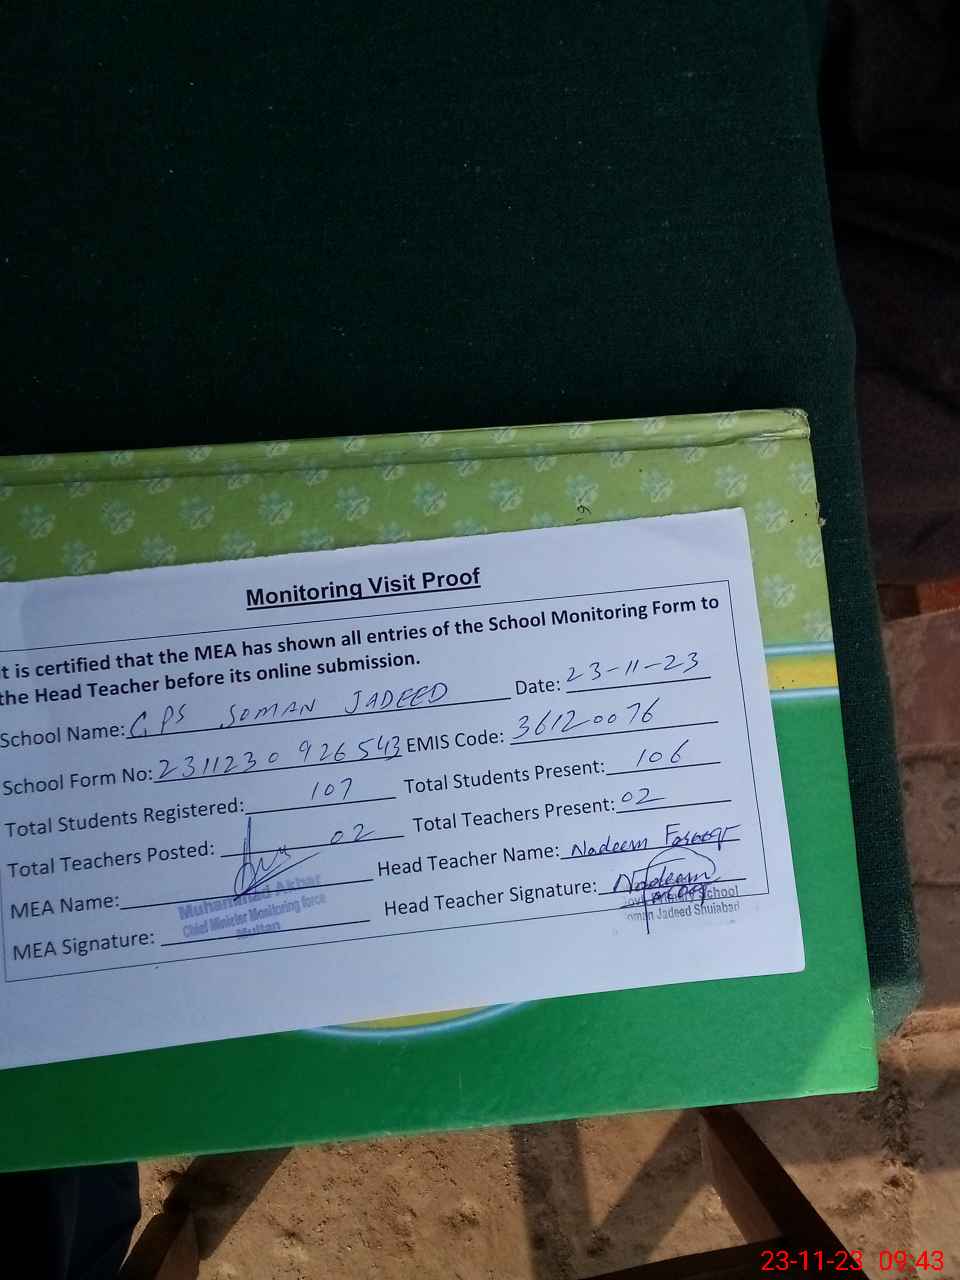 Monitoring Visit Proof
It is certified that the MEA has shown all entries of the School Monitoring Form to
the Head Teacher before its online submission.
School Name: GPS SOMAN JADEED Date: 23-11-23
School Form No: 2311230926543 EMIS Code: 36120076
Total Students Registered: 107 Total Students Present: 106
Total Teachers Posted: 02 Total Teachers Present: 02
MEA Name: Head Teacher Name: Nadeem Farooq
Muhammad Akbar
Chief Minister Monitoring force
Multan
MEA Signature: Head Teacher Signature: Nadeem
Primary School
Jadeed Shujabad
23-11-23 09:43